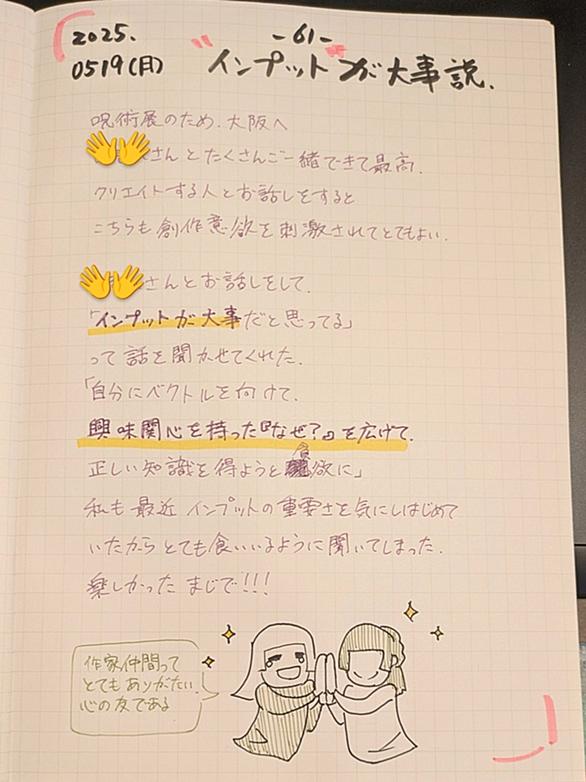 2025.
0519(月)
-61-
"インプット"が大事説.
呪術展のため.大阪へ
さんとたくさんご一緒できて最高.
クリエイトする人とお話しをすると
こちらも創作意欲を刺激されてとてもよい.
さんとお話しをして.
「インプットが大事だと思ってる」
って話を聞かせてくれた.
「自分にベクトルを向けて.
興味関心を持った『なぜ?』を広げて.
正しい知識を得ようと貪欲に」
私も最近インプットの重要さを気にしはじめて
いたからとても食いいるように聞いてしまった.
楽しかった まじで!!!
作家仲間って
とてもありがたい
心の友である